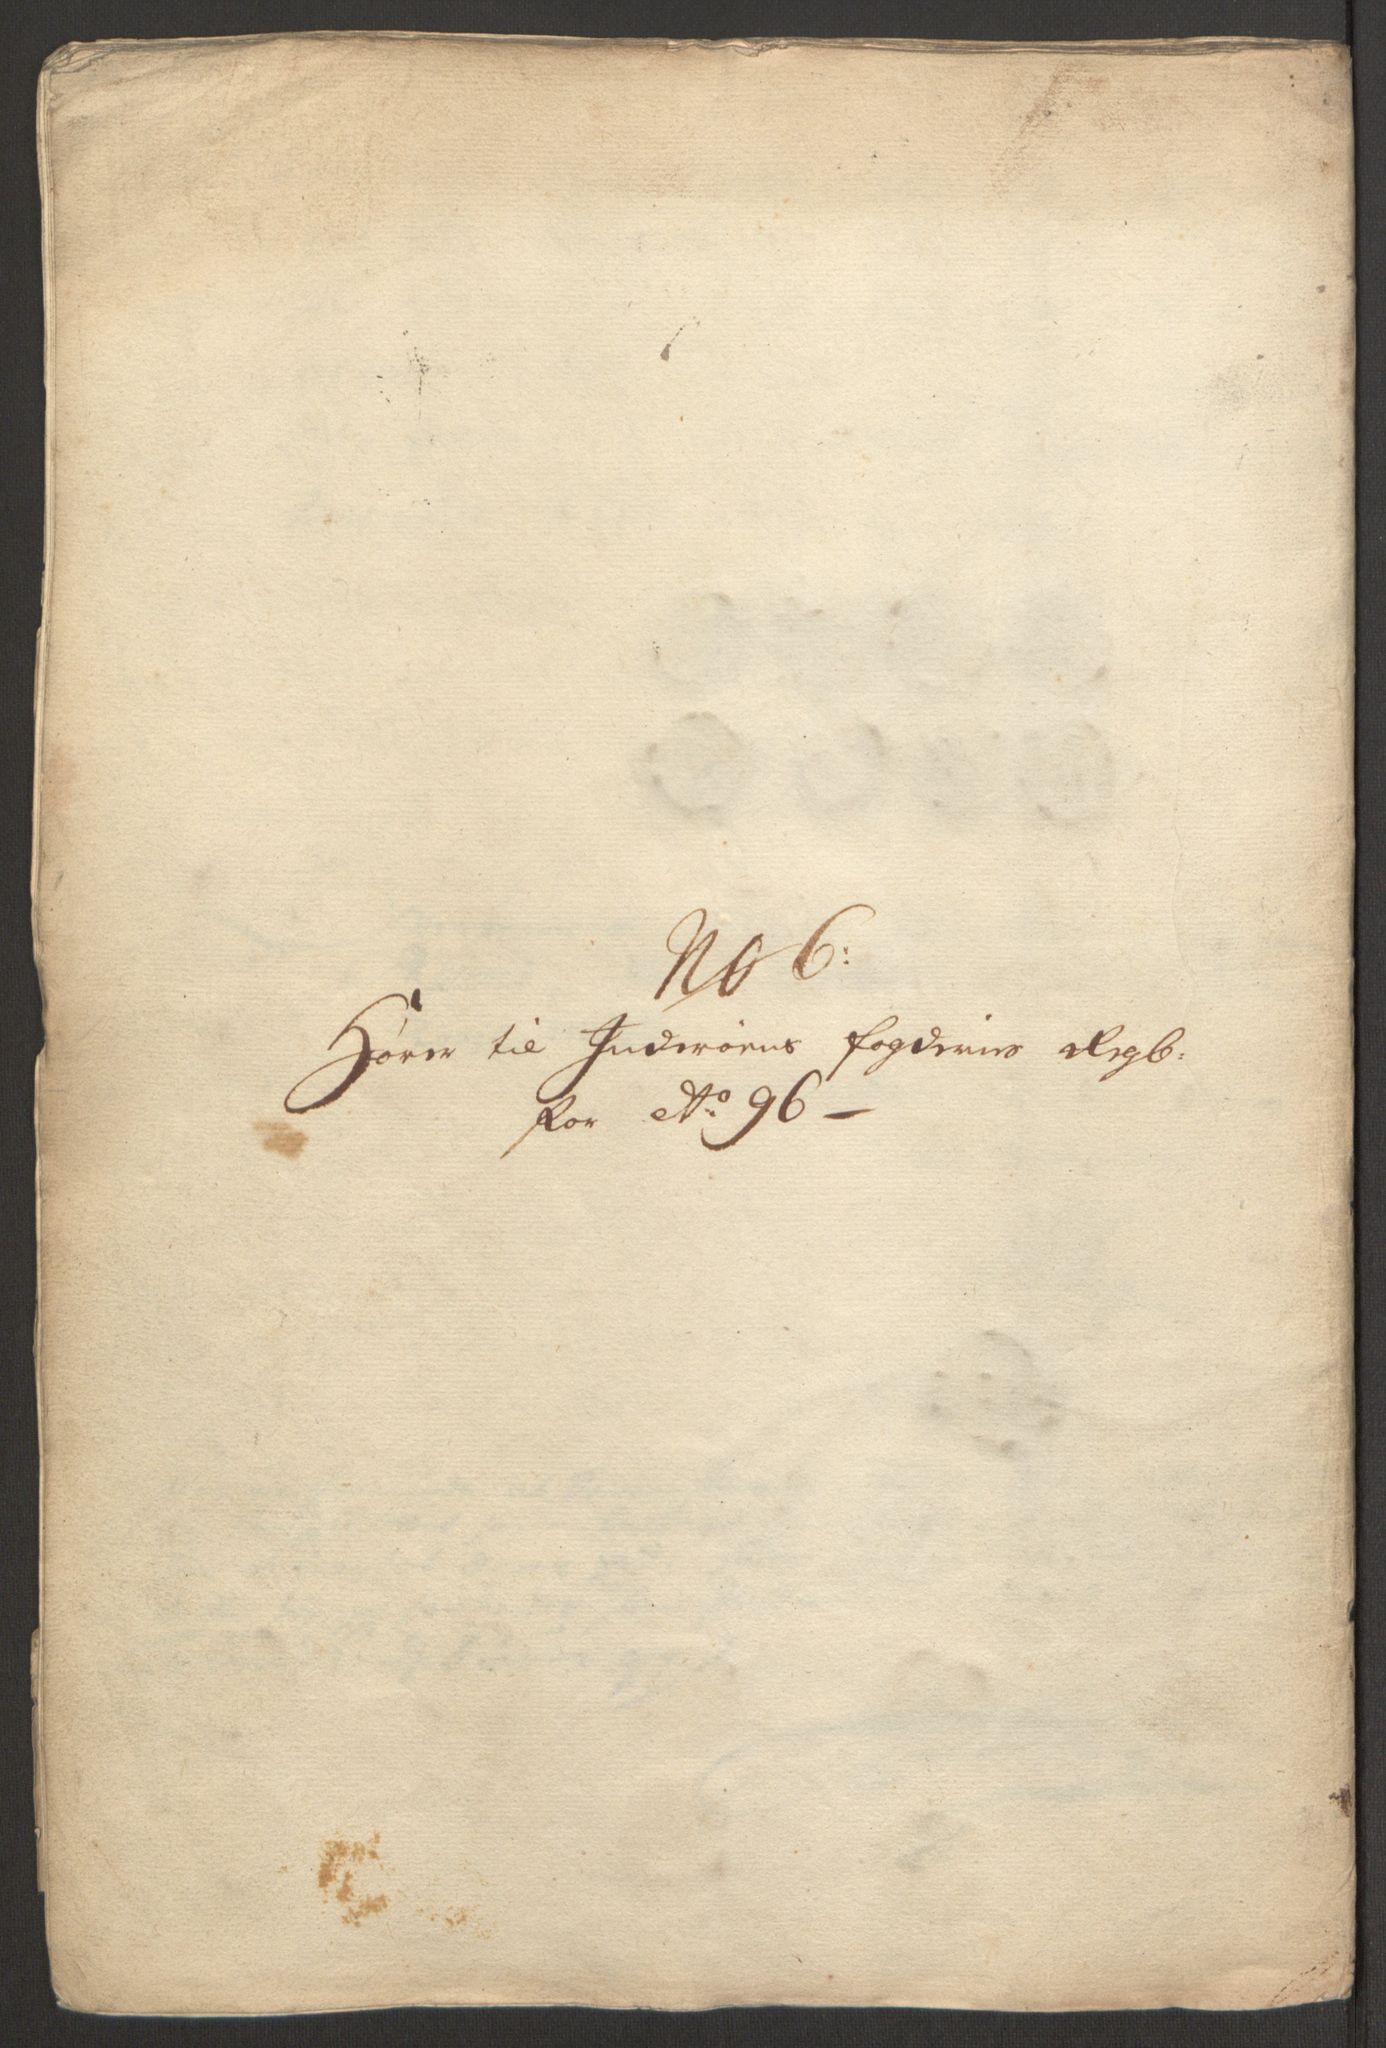 No 6:
Hører til Inderøens fogderies Regb:
for Ao: 96 –